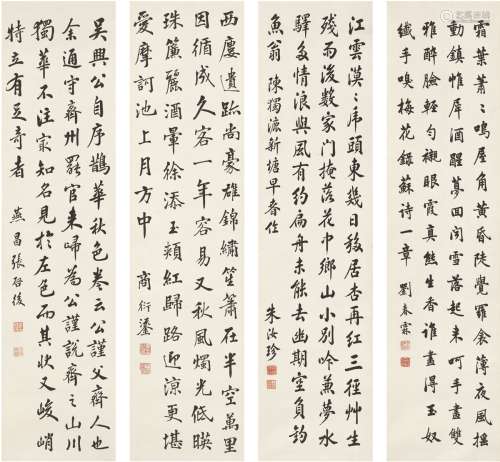 霜葉蕭蕭鳴屋角黄昏陡覺羅衾薄夜風摇
動鎮帷犀酒醒夢回聞雪落起来呵手畫雙
雅醉臉輕勻襯眼霞真態生香誰畫得玉奴
纖手嗅梅花 錄蘇詩一章 劉春霖
江雲漠漠海頭東幾日移居杏再紅三徑艸生
残雨後數家門掩落花中鄉山小別吟兼夢水
驛多情浪與風有約扁舟未能去幽期空負釣
魚翁 陳獨漉新塘早春作 朱汝珍
西廔遺跡尚豪雄錦繡笙簫在半空萬里
因循成久客一年容易又秋風燭光低暎
珠簾麗酒暈徐添玉頰紅歸路迎涼更堪
愛摩訶池上月方中 商衍鎏
吴興公自序鵲華秋色卷云公父齊人也
余通守齊州罷官来歸為公謹說齊之山川
獨華不注㝡知名見於左氏而其狀又峻峭
特立有足奇者 燕昌張啓後